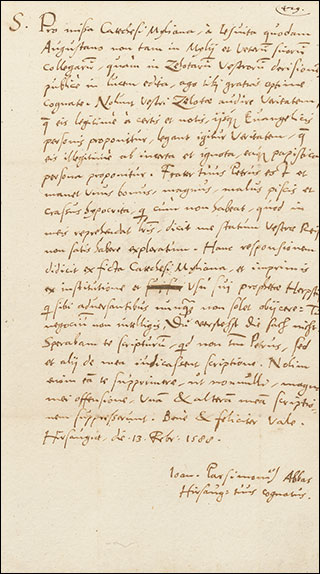 429.
S. Pro missa Catechesi Mÿliana, à Iesuita quodam
Augustano non tam in Molij et veterum suorum
collegarum, quàm in Zelotarum vestrorum derisionem
publicè in lucem edita, ago tibi gratias optime
cognate. Nolunt vestri Zelotae audire veritatem,
quae eis legitimè à certis et notis, ijsque Euangelicis
personis proponitur, legant igitur veritatem, quae
eis illegitimè ab incerta et ignota, eaque papistica
persona proponitur. Frater tuus Petrus est et
manet unus bonus, magnus, malus piscis et
crassus hypocrita, qui cùm non habeat, quod in
meis reprehendat, dicit me statum vestrae
non satis habere exploratum. Hanc responsionem
didicit ex ficta Catechesi Mÿliana, et inprimis
ex institutione et usu sui prophetae
qui sibi aduersantibus non solet obijcere: Tu
negocium non intelligis, Du verstehst die sach nicht.
Sperabam te scripturum, quid non tàm Petrus, sed
et alij de mea iudicassent scriptione. Nolim
enim te supprimere, ut nonnulli, magna
mei offensione, unam & alteram meam scriptio-
nem suppresserunt. Bene & feliciter vale.
Hirsaugiae, die 13. Febr: 1580.
Ioan. Parsimonius Abbas
Hirsaug: tuus cognatus.